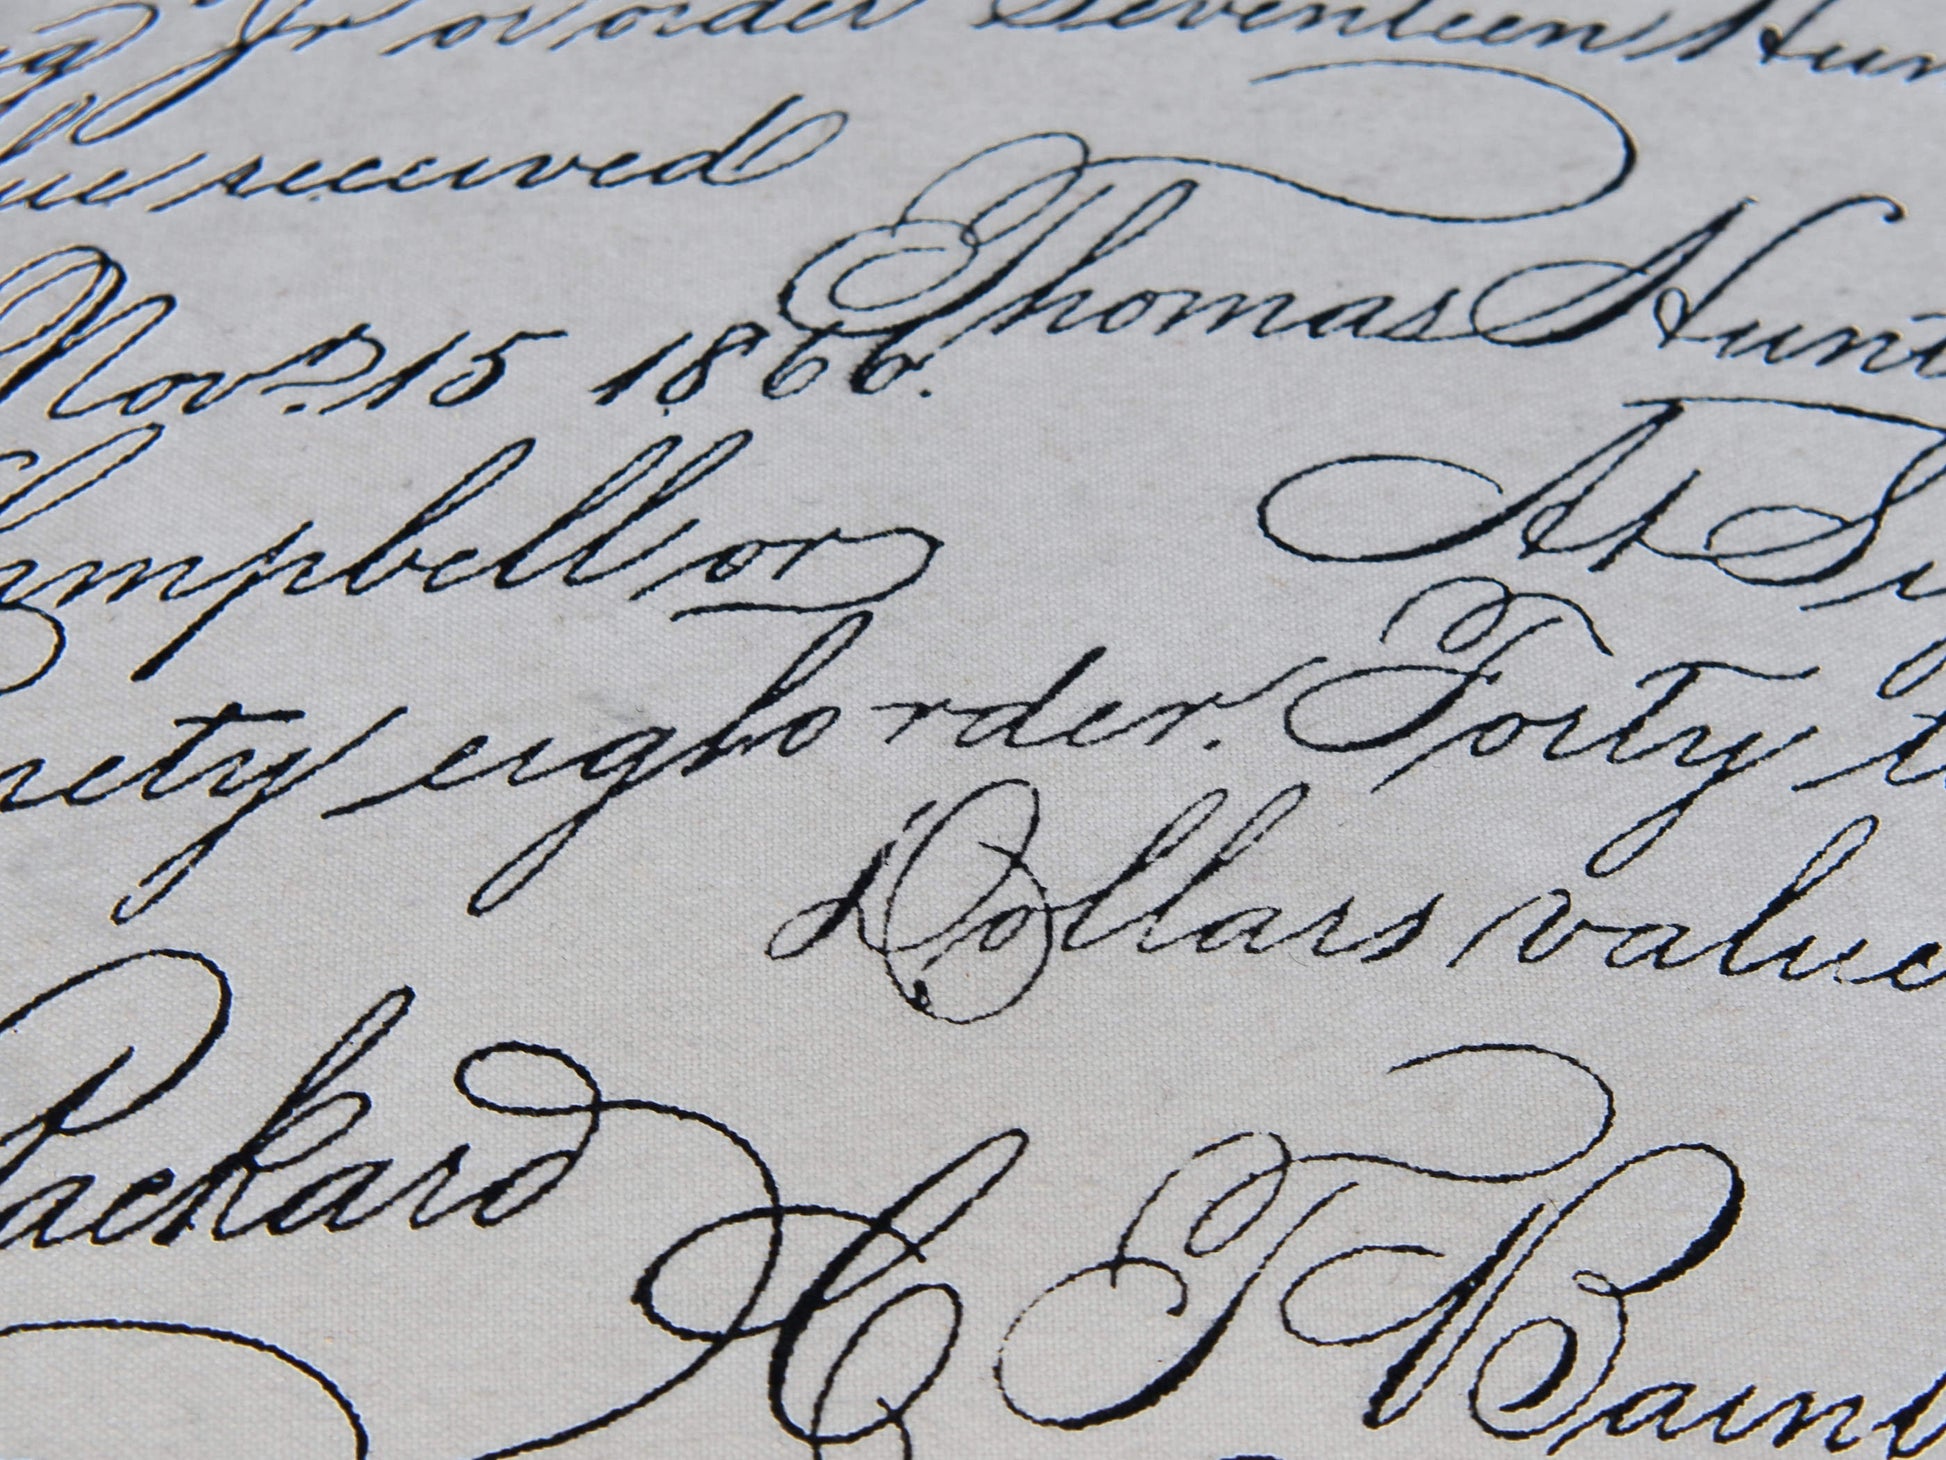 Jr or order Seventeen Hun
received
Thomas Hunt
Nov. 15 1866.
Campbell or
At Si
nety eigh order. Forty t
Dollars value
Packard
C T Bain